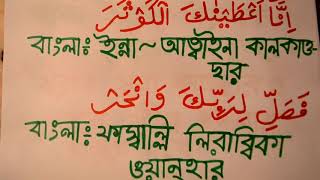 إِنَّا أَعْطَيْنٰكَ الْكَوْثَرَ
বাংলাঃ ইন্না~ আত্বাইনা কালকাও
ছার
فَصَلِّ لِرَبِّكَ وَانْحَرْ
বাংলাঃ ফাস্বাল্লি লিরাব্বিকা
ওয়ান্‌হার